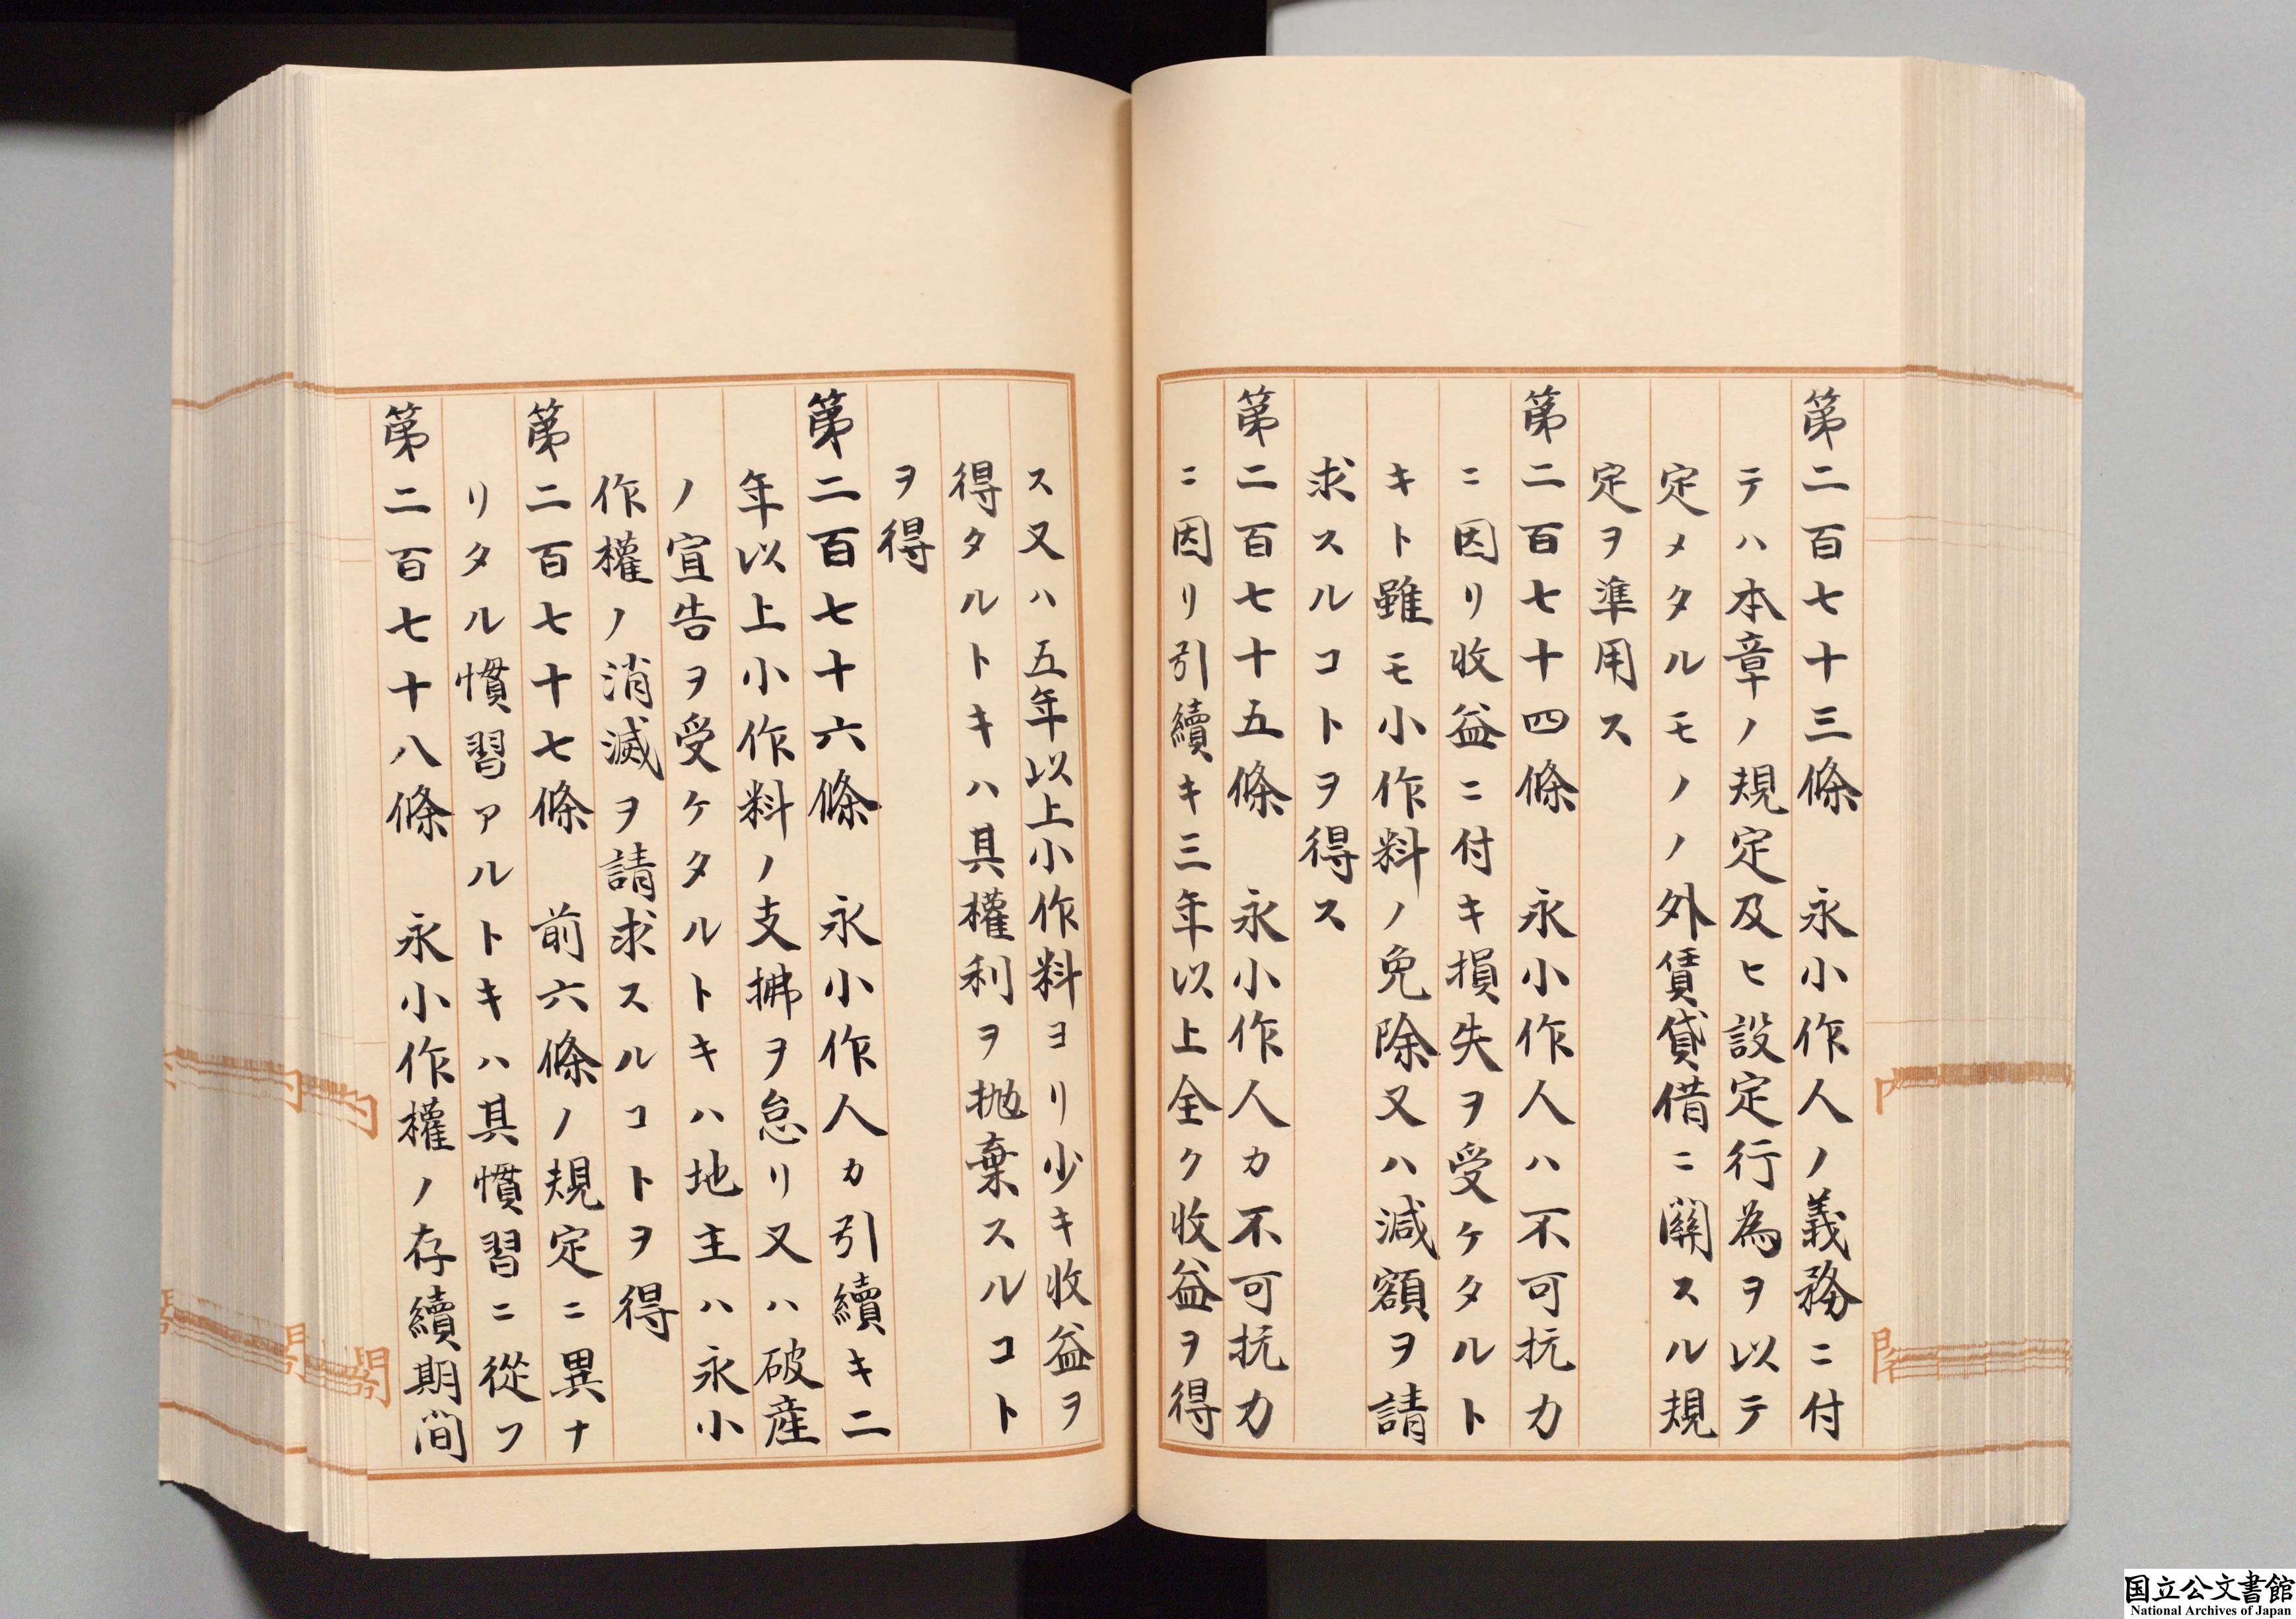 第二百七十三條　永小作人ノ義務ニ付
テハ本章ノ規定及ヒ設定行為ヲ以テ
定メタルモノノ外賃貸借ニ關スル規
定ヲ準用ス
第二百七十四條　永小作人ハ不可抗力
ニ因リ收益ニ付キ損失ヲ受ケタルト
キト雖モ小作料ノ免除又ハ減額ヲ請
求スルコトヲ得ス
第二百七十五條　永小作人カ不可抗力
ニ因リ引續キ三年以上全ク收益ヲ得
ス又ハ五年以上小作料ヨリ少キ收益ヲ
得タルトキハ其權利ヲ抛棄スルコト
ヲ得
第二百七十六條　永小作人カ引續キ二
年以上小作料ノ支拂ヲ怠リ又ハ破産
ノ宣告ヲ受ケタルトキハ地主ハ永小
作權ノ消滅ヲ請求スルコトヲ得
第二百七十七條　前六條ノ規定ニ異ナ
リタル慣習アルトキハ其慣習ニ從フ
第二百七十八條　永小作權ノ存續期間
国立公文書館
National Archives of Japan